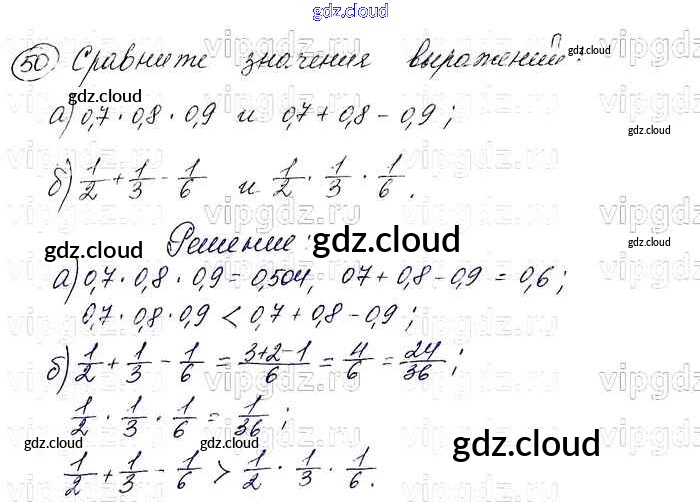 gdz.cloud
50 Сравните значения выражений:
gdz.cloud
gdz.cloud
а) 0,7 · 0,8 · 0,9 и 0,7 + 0,8 - 0,9;
gdz.cloud
б) 1/2 + 1/3 - 1/6 и 1/2 · 1/3 · 1/6.
Решение:
gdz.cloud
gdz.cloud
а) 0,7 · 0,8 · 0,9 = 0,504, 07 + 0,8 - 0,9 = 0,6;
0,7 · 0,8 · 0,9 < 0,7 + 0,8 - 0,9;
б) 1/2 + 1/3 - 1/6 = 3+2-1/6 = 4/6 = 24/36;
1/2 · 1/3 · 1/6 = 1/36;
gdz.cloud
gdz.cloud
gdz.cloud
1/2 + 1/3 - 1/6 > 1/2 · 1/3 · 1/6.